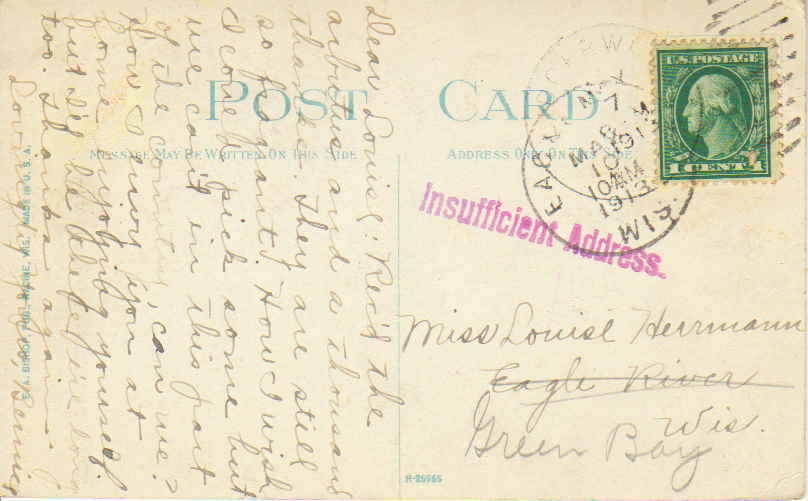 POST CARD
MESSAGE MAY BE WRITTEN ON THIS SIDE
ADDRESS ONLY ON THIS SIDE
Dear Louise: Rec'd the
arbutus and a thousand
thanks. They are still
so fragrant. How I wish
I could pick some but
we can't in this part
of the country, can we?
How I envy you at
home enjoying yourself
but I'll be there
too. Thanks again
Lovingly
U.S. POSTAGE
1 CENT 1
EAGLE
MAY
7
10 AM
1913
WIS
Insufficient Address.
Miss Louise Herrmann
Eagle River
Wis.
Green Bay
E. A. BISHOP, PUB., RACINE, WIS. MADE IN U.S.A.